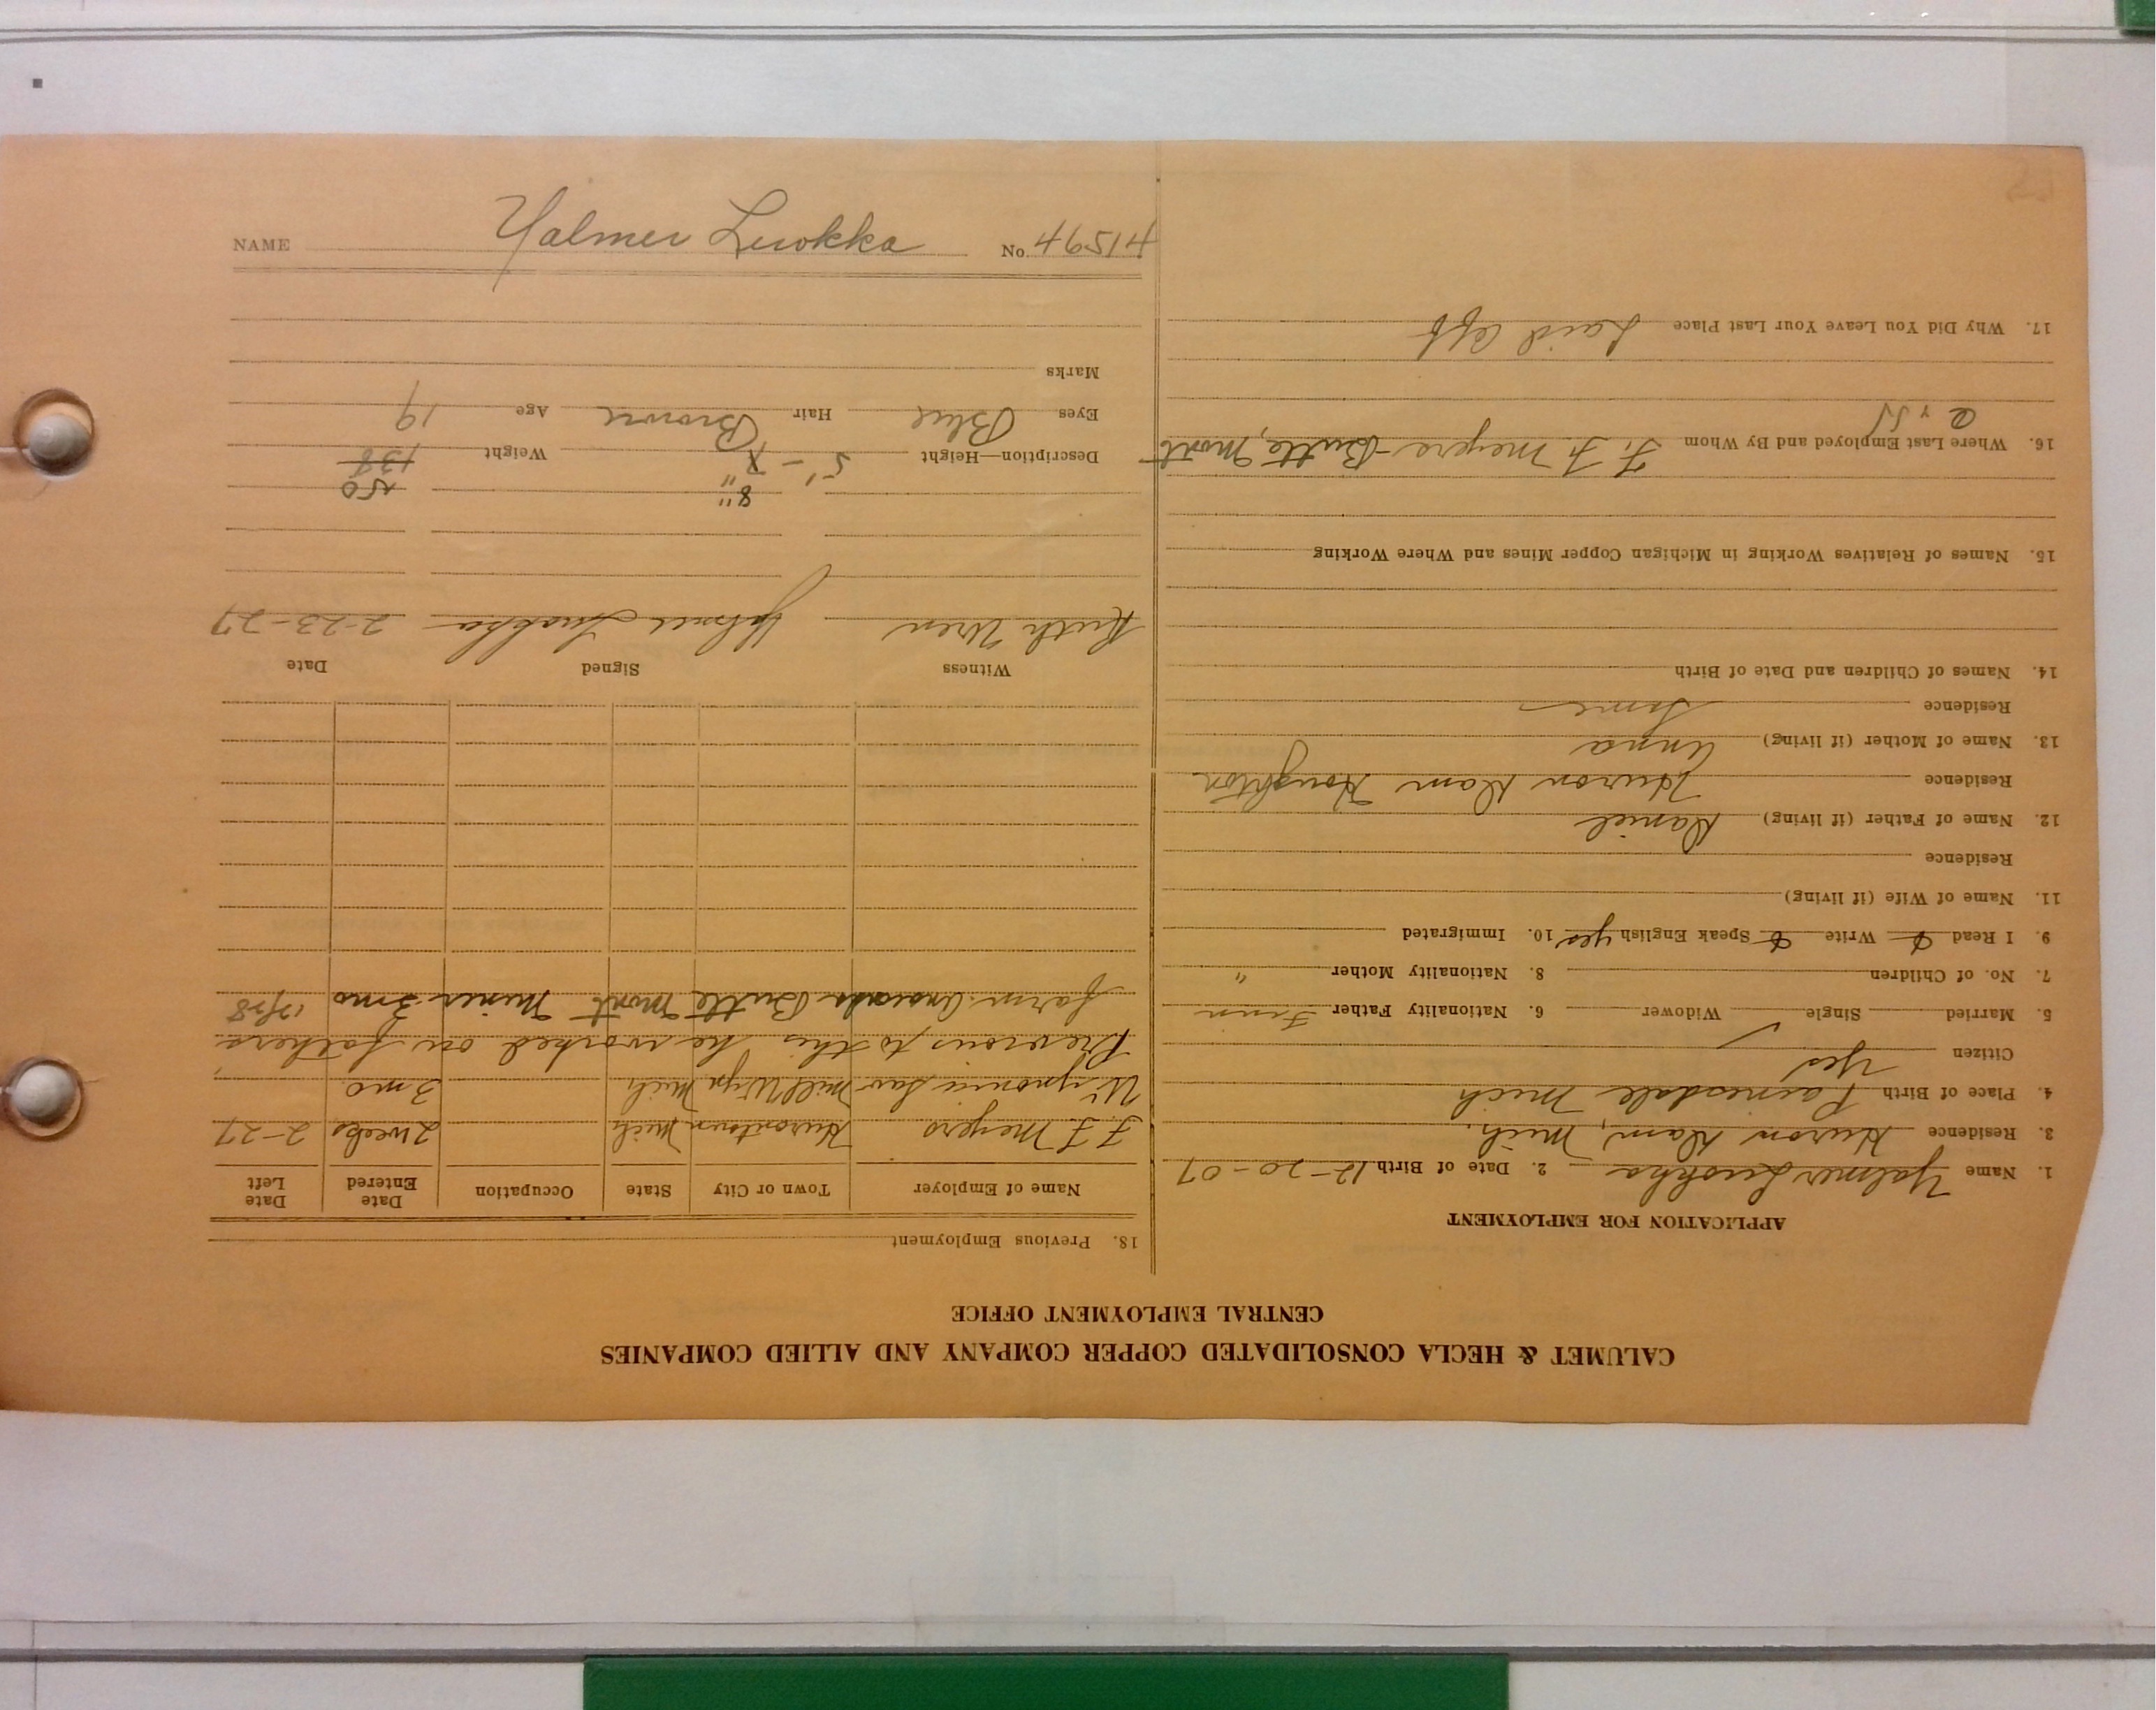 CALUMET & HECLA CONSOLIDATED COPPER COMPANY AND ALLIED COMPANIES
CENTRAL EMPLOYMENT OFFICE
APPLICATION FOR EMPLOYMENT
1. Name Yalmer Luokka 2. Date of Birth 12-20-07
3. Residence Huron Dam, Mich.
4. Place of Birth Painesdale Mich
Citizen Yes
5. Married Single ✓ Widower 6. Nationality Father Finn
7. No. of Children 8. Nationality Mother "
9. I Read Write Speak English yes 10. Immigrated
11. Name of Wife (if living)
Residence
12. Name of Father (if living) Daniel
Residence Huron Dam Houghton
13. Name of Mother (if living) Anna
Residence Same
14. Names of Children and Date of Birth
15. Names of Relatives Working in Michigan Copper Mines and Where Working
16. Where Last Employed and By Whom F. F. Meyers - Butte, Mont
17. Why Did You Leave Your Last Place Laid off
18. Previous Employment
Name of Employer Town or City State Occupation Date Entered Date Left
F. F. Meyers Hurontown Mich 2 weeks 2-27
Winona Saw Mill Mich 3 mo
Previous to this he worked on fathers
farm. Butte Mont Miner 3 mo
Witness Signed Date
Ruth Uren Yalmer Luokka 2-23-27
8" 150
Description—Height 5'- 7" Weight 138
Eyes Blue Hair Brown Age 19
Marks
NAME Yalmer Luokka No. 46514